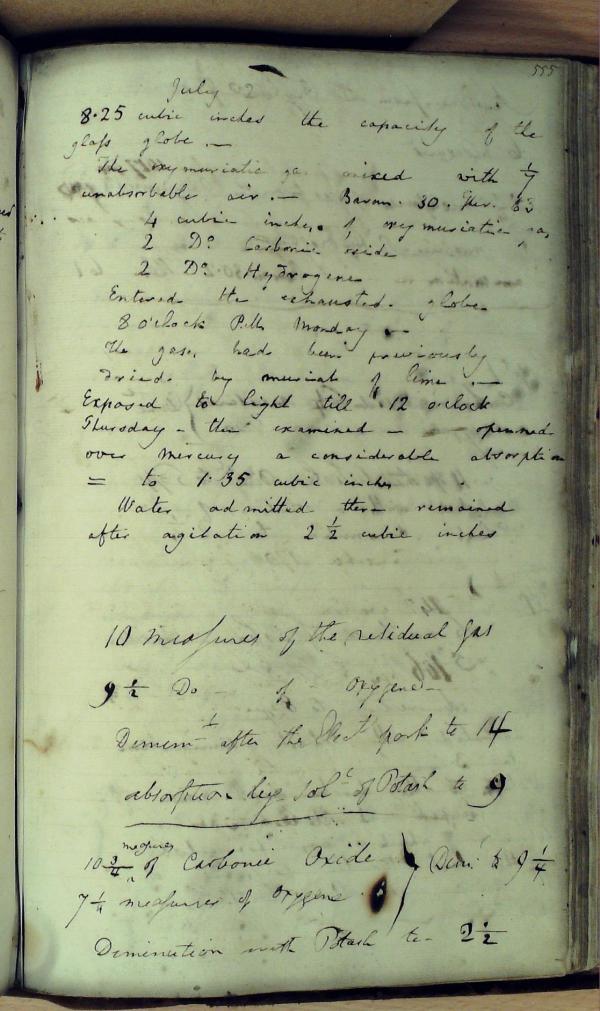 555
July 2
8.25 cubic inches the capacity of the
glass globe. —
The oxymuriatic gas mixed with 1/7
unabsorbable air. — Barom. 30. Ther. 63
4 cubic inches of oxymuriatic gas
2 Do Carbonic oxide
2 Do Hydrogene
Entered the exhausted globe
8 o'clock Monday —
The gases had been previously
dried by muriat of lime. —
Exposed to light till 12 o clock
Thursday – then examined – openned
over mercury a considerable absorption
= to 1.35 cubic inches
Water admitted there remained
after agitation 2 1/2 cubic inches
10 measures of the residual gas
9 1/2 Do — of — Oxygene —
Dimin after the Elect spark to 14
absorption by sol of Potash to 9
10 3/4 measures of Carbonic Oxide
7 1/4 measures of Oxygene } Dim to 9 1/4
Diminution with Potash to – 2 1/2